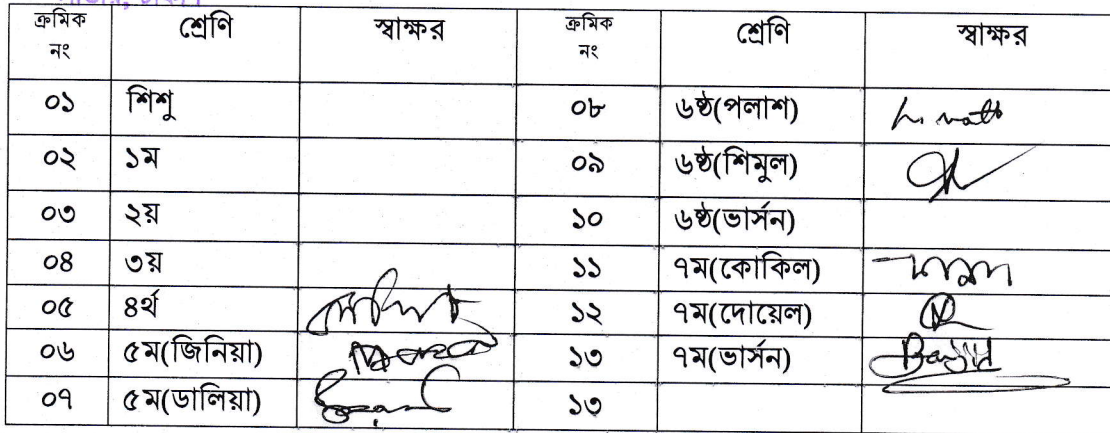 ক্রমিক নং শ্রেণি স্বাক্ষর ক্রমিক নং শ্রেণি স্বাক্ষর
০১ শিশু ০৮ ৬ষ্ঠ(পলাশ)
০২ ১ম ০৯ ৬ষ্ঠ(শিমুল)
০৩ ২য় ১০ ৬ষ্ঠ(ভার্সন)
০৪ ৩য় ১১ ৭ম(কোকিল)
০৫ ৪র্থ ১২ ৭ম(দোয়েল)
০৬ ৫ম(জিনিয়া) ১৩ ৭ম(ভার্সন)
০৭ ৫ম(ডালিয়া) ১৩